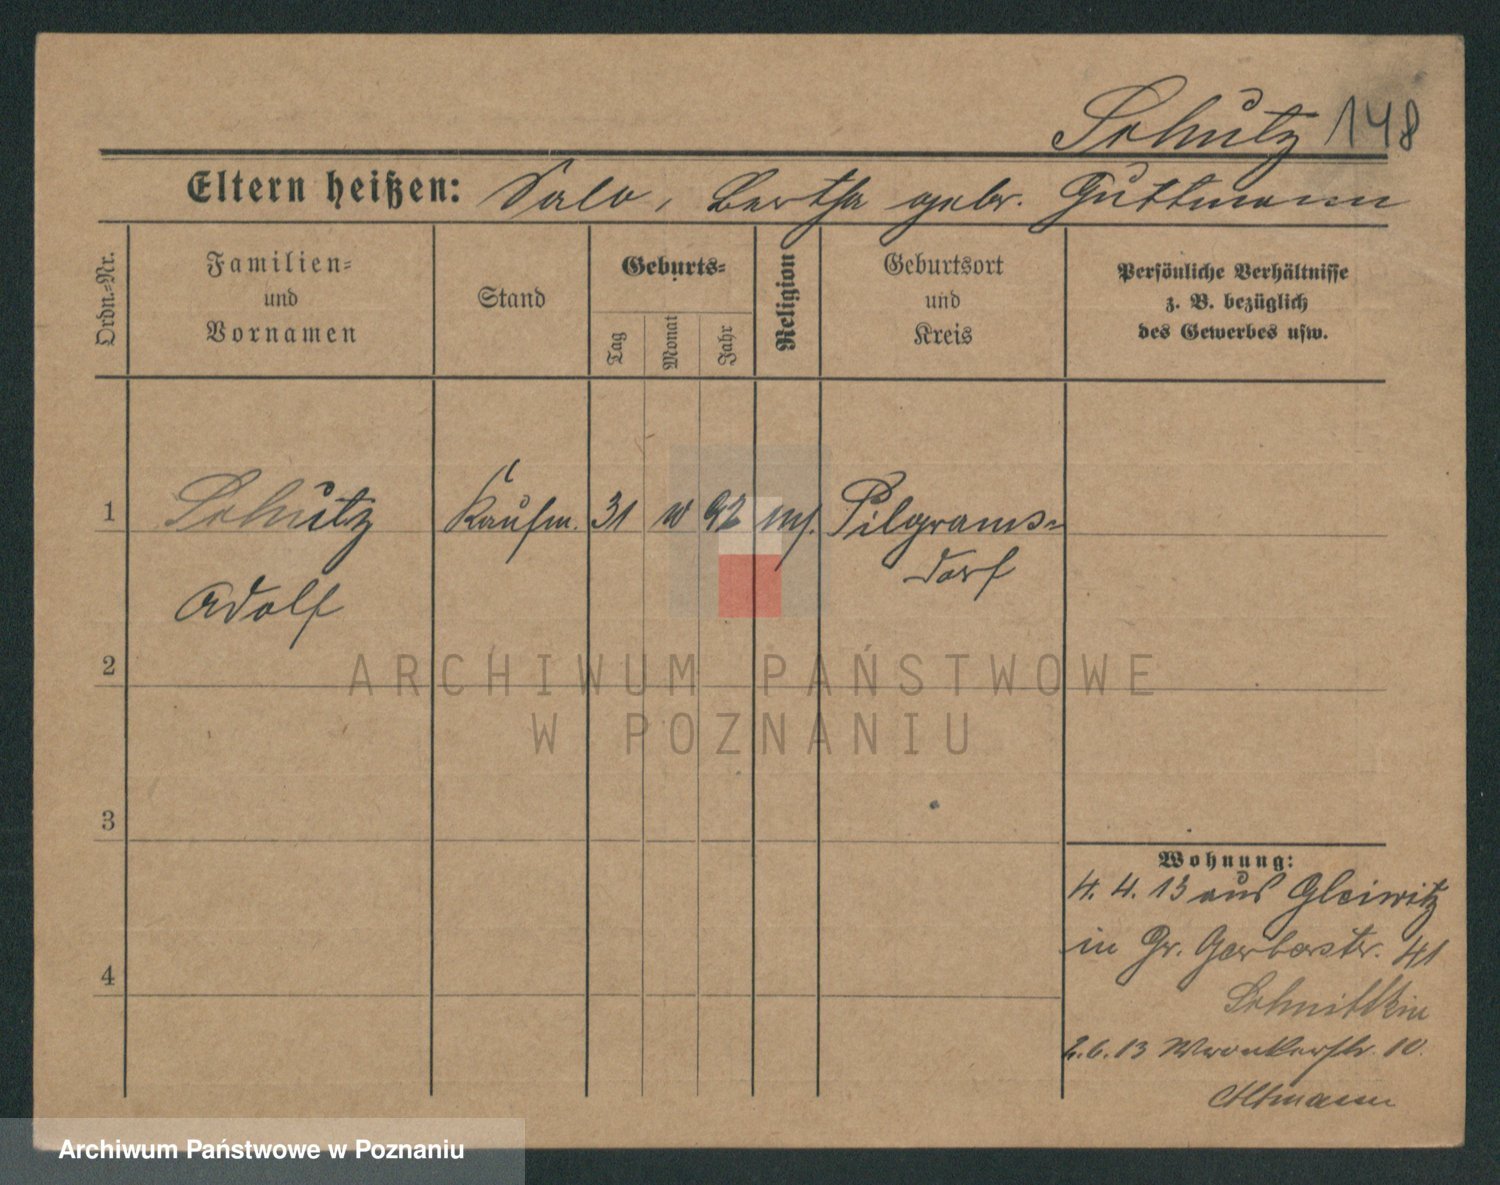 Schütz 148
Eltern heißen: Salo, Bertha gebr. Guttmann
Ordn.-Nr.
Familien-
und
Vornamen
Stand
Geburts-
Tag
Monat
Jahr
Religion
Geburtsort
und
Kreis
Persönliche Verhältnisse
z. B. bezüglich
des Gewerbes usw.
1 Schütz Kaufm. 31 10 92 mos. Pilgrams-
dorf
Adolf
2
ARCHIWUM PAŃSTWOWE
W POZNANIU
3
Wohnung:
4. 4. 13 aus Gleiwitz
in Gr. Gerberstr. 41
4
2.6.13 Wronkerstr. 10.
Altmann
Archiwum Państwowe w Poznaniu